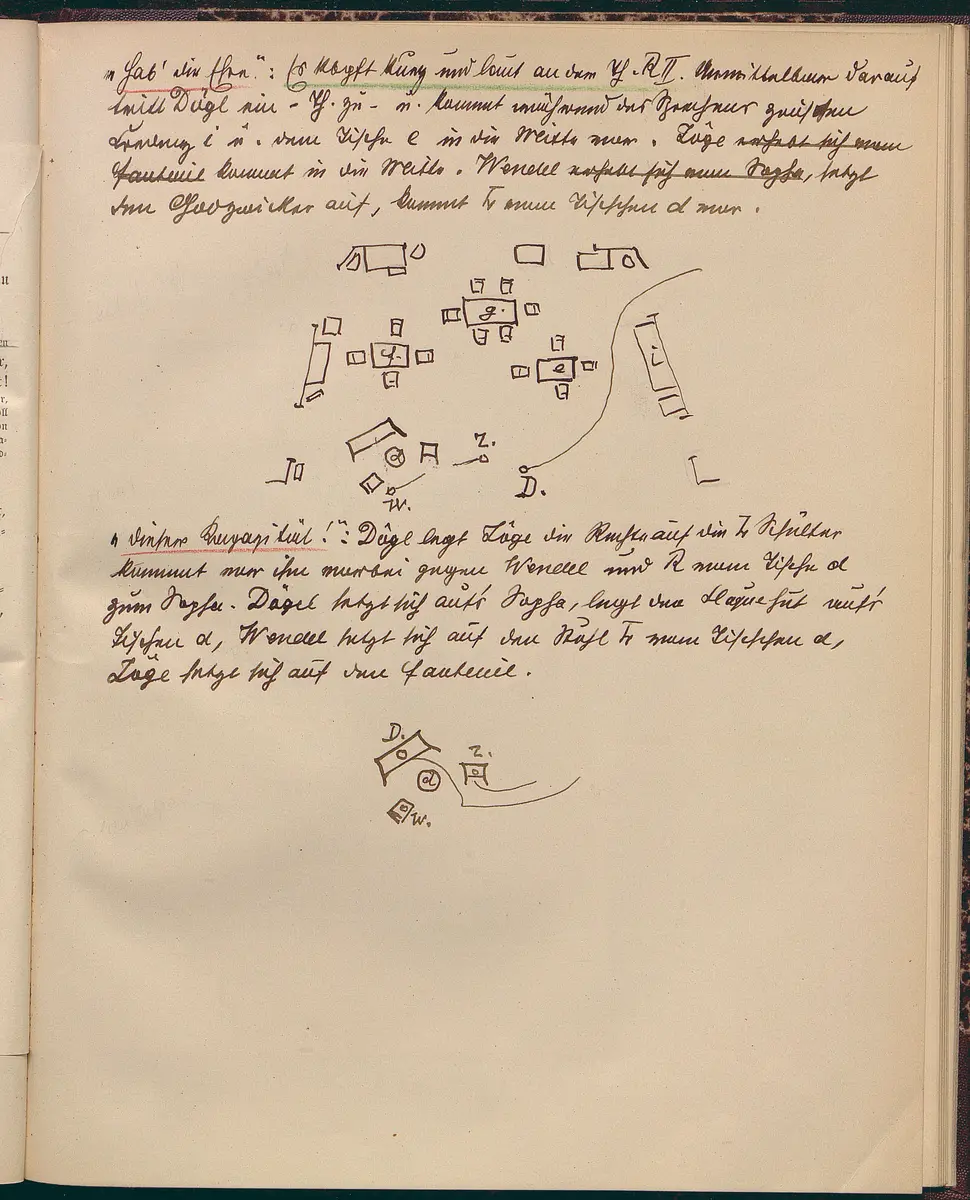 „Hab' die Ehre“: Es klopft kurz und laut an der Th. R II. Unmittelbar darauf
tritt Dögl ein – Th. zu – u. kommt während des Sprechens zwischen
Credenz i u. dem Tische e in die Mitte vor. Zöge erhebt sich vom
Fauteuil kommt in die Mitte. Wendel erhebt sich vom Sopha, setzt
den Zwicker auf, kommt L vom Tischchen d vor.
g.
f.
i
e
d
Z.
W.
D.
„dieser Kapazität!“: Dögl legt Zöge die Rechte auf die L Schulter
kommt vor ihm vorbei gegen Wendel und R vom Tische d
zum Sopha. Dögel setzt sich auf's Sopha, legt den Claquehut auf's
Tischchen d, Wendel setzt sich auf den Stuhl L vom Tischchen d,
Zöge setzt sich auf den Fauteuil.
D.
Z.
d
W.